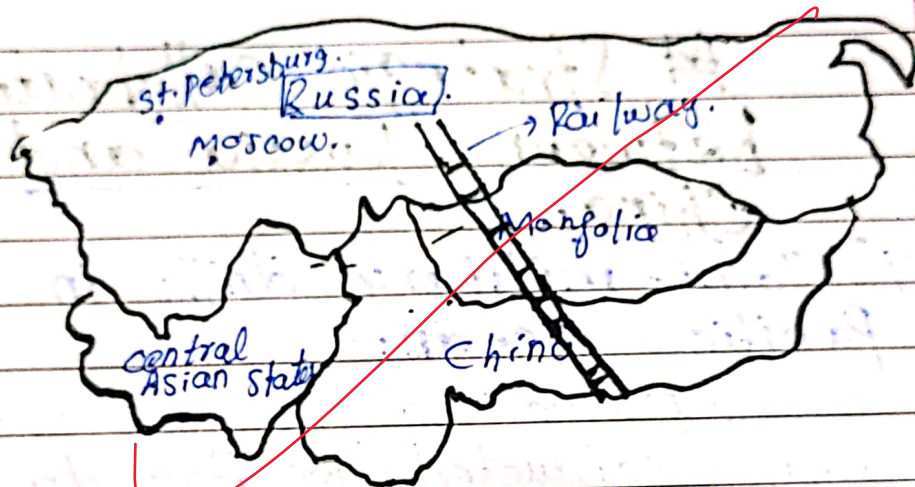 St. Petersburg.
Russia.
Moscow.
Railway.
Mongolia
China
Central
Asian States